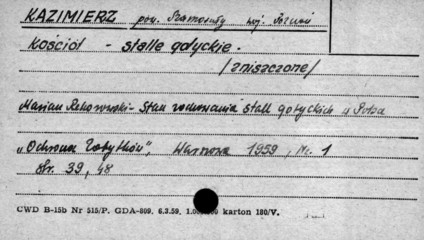 KAZIMIERZ pow. Szamotuły woj. Poznań
Kościół - stalle gotyckie.
/zniszczone/
Marian Rehorowski - Stan zachowania stall gotyckich w Polsce
"Ochrona Zabytków", Warszawa 1959, Nr. 1
Str. 39, 48
CWD B-15b Nr 515/P. GDA-809. 6.3.59. karton 180/V.